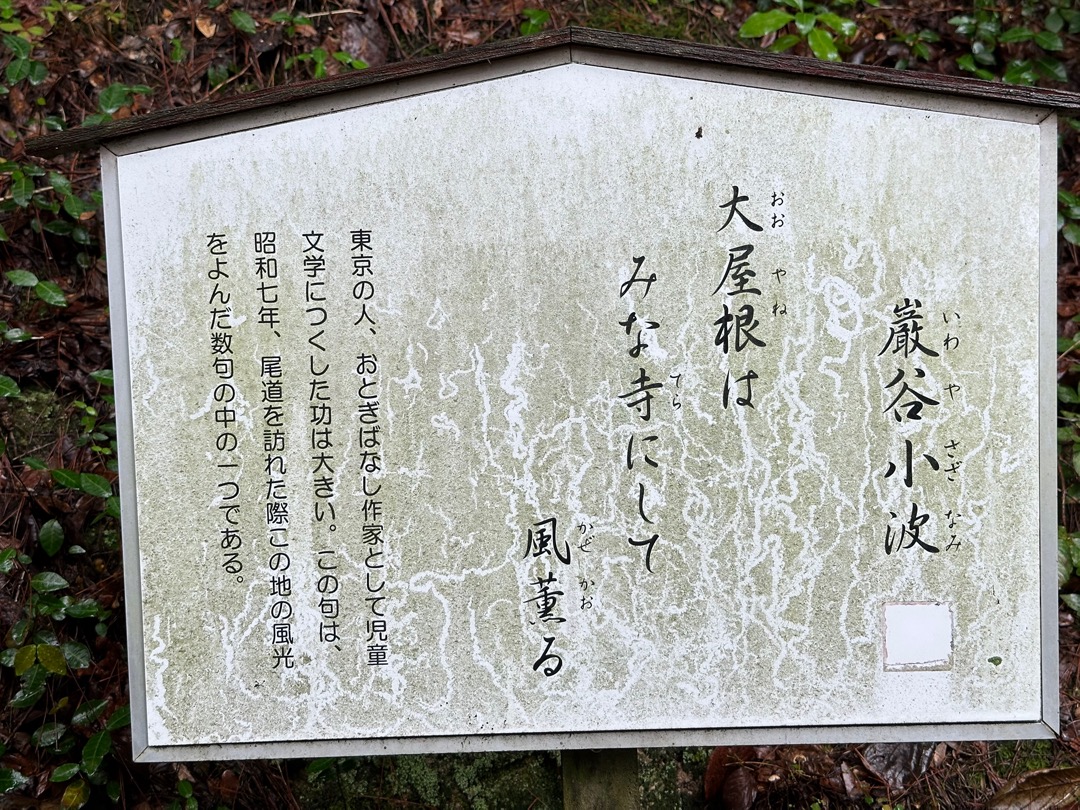 巖谷小波
いわやさざなみ
大屋根は
おおやね
みな寺にして
てら
風薫る
かぜかお
東京の人、おとぎばなし作家として児童
文学につくした功は大きい。この句は、
昭和七年、尾道を訪れた際この地の風光
をよんだ数句の中の一つである。